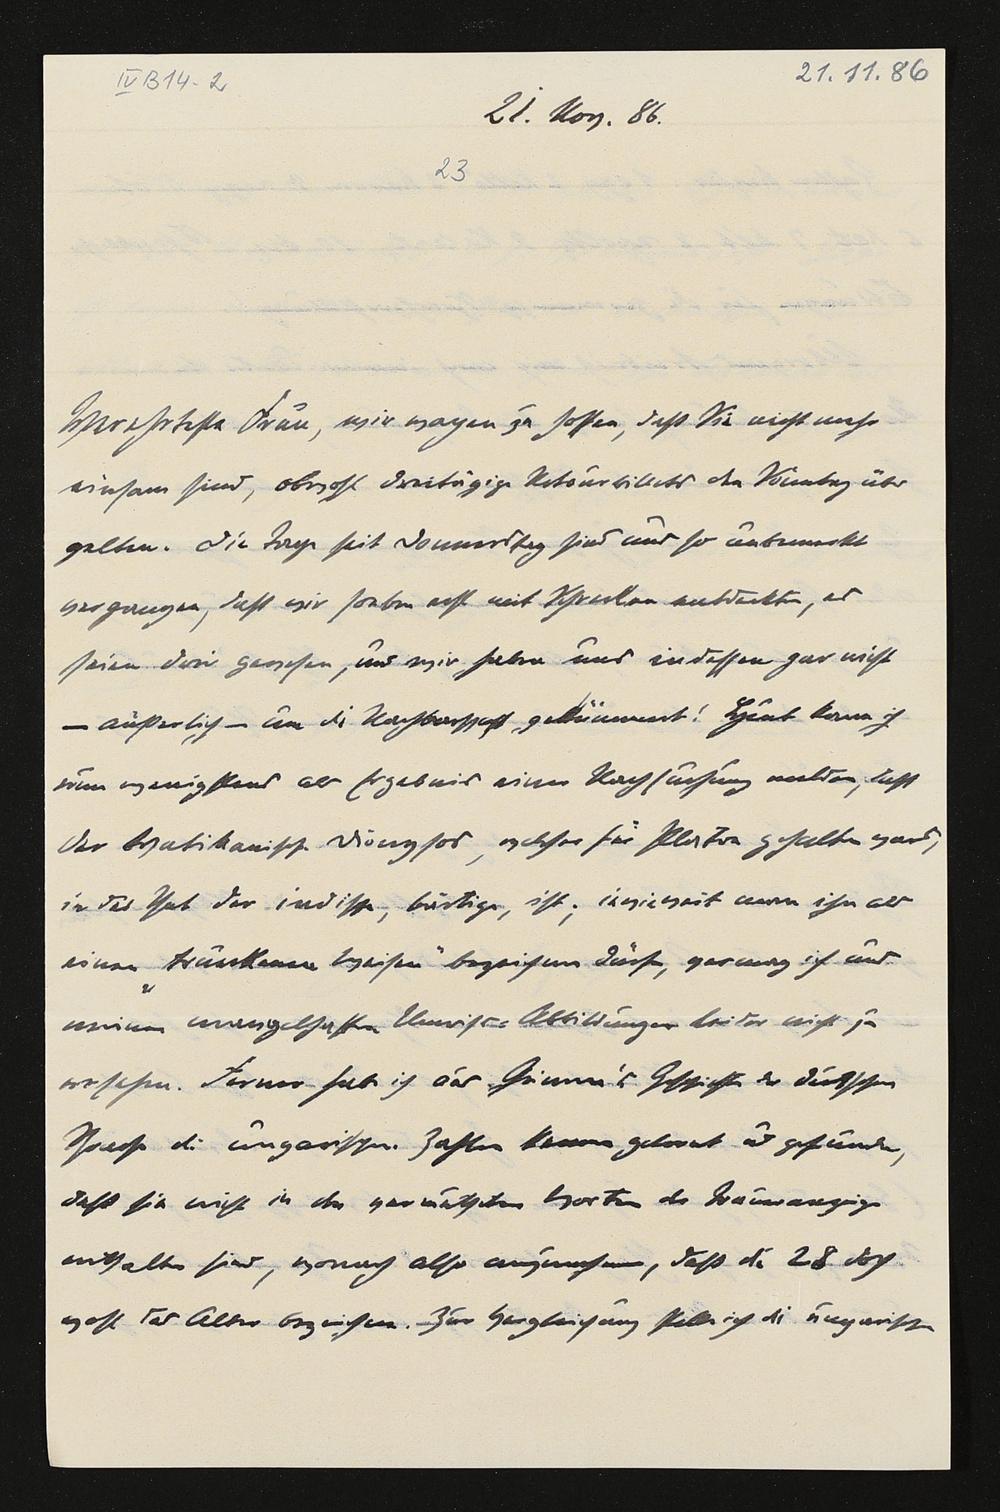 IV B 14-2
21.11.86
21. Nov. 86.
23
Verehrteste Frau, wir wagen zu hoffen, daß Sie nicht mehr
einsam sind, obwohl dreitägige Retourbillets den Sonntag über
gelten. Die Tage seit Donnerstag sind uns so unbemerkt
vergangen, daß wir soeben erst mit Schrecken entdeckten, es
seien drei gewesen, und wir haben uns indessen gar nicht
— äußerlich — um die Nachbarschaft gekümmert! Heut kann ich
nun wenigstens als Ergebnis einer Nachsuchung melden, daß
der Vatikanische Dionysos, welcher für Platon gehalten ward,
in der That der indische, bärtige, ist; inwieweit man ihn als
einen „trunkenen Weisen" bezeichnen dürfe, vermag ich aus
meinen mangelhaften Umriss-Abbildungen leider nicht zu
ersehen. Ferner hab ich aus Grimm's Geschichte der deutschen
Sprache die ungarischen Zahlen kennen gelernt und gefunden,
daß sie nicht in den vermutheten Worten der Traueranzeige
enthalten sind, wonach also anzunehmen, daß die 28 doch
wohl das Alter bezeichnen. Zur Vergleichung stelle ich die ungarischen